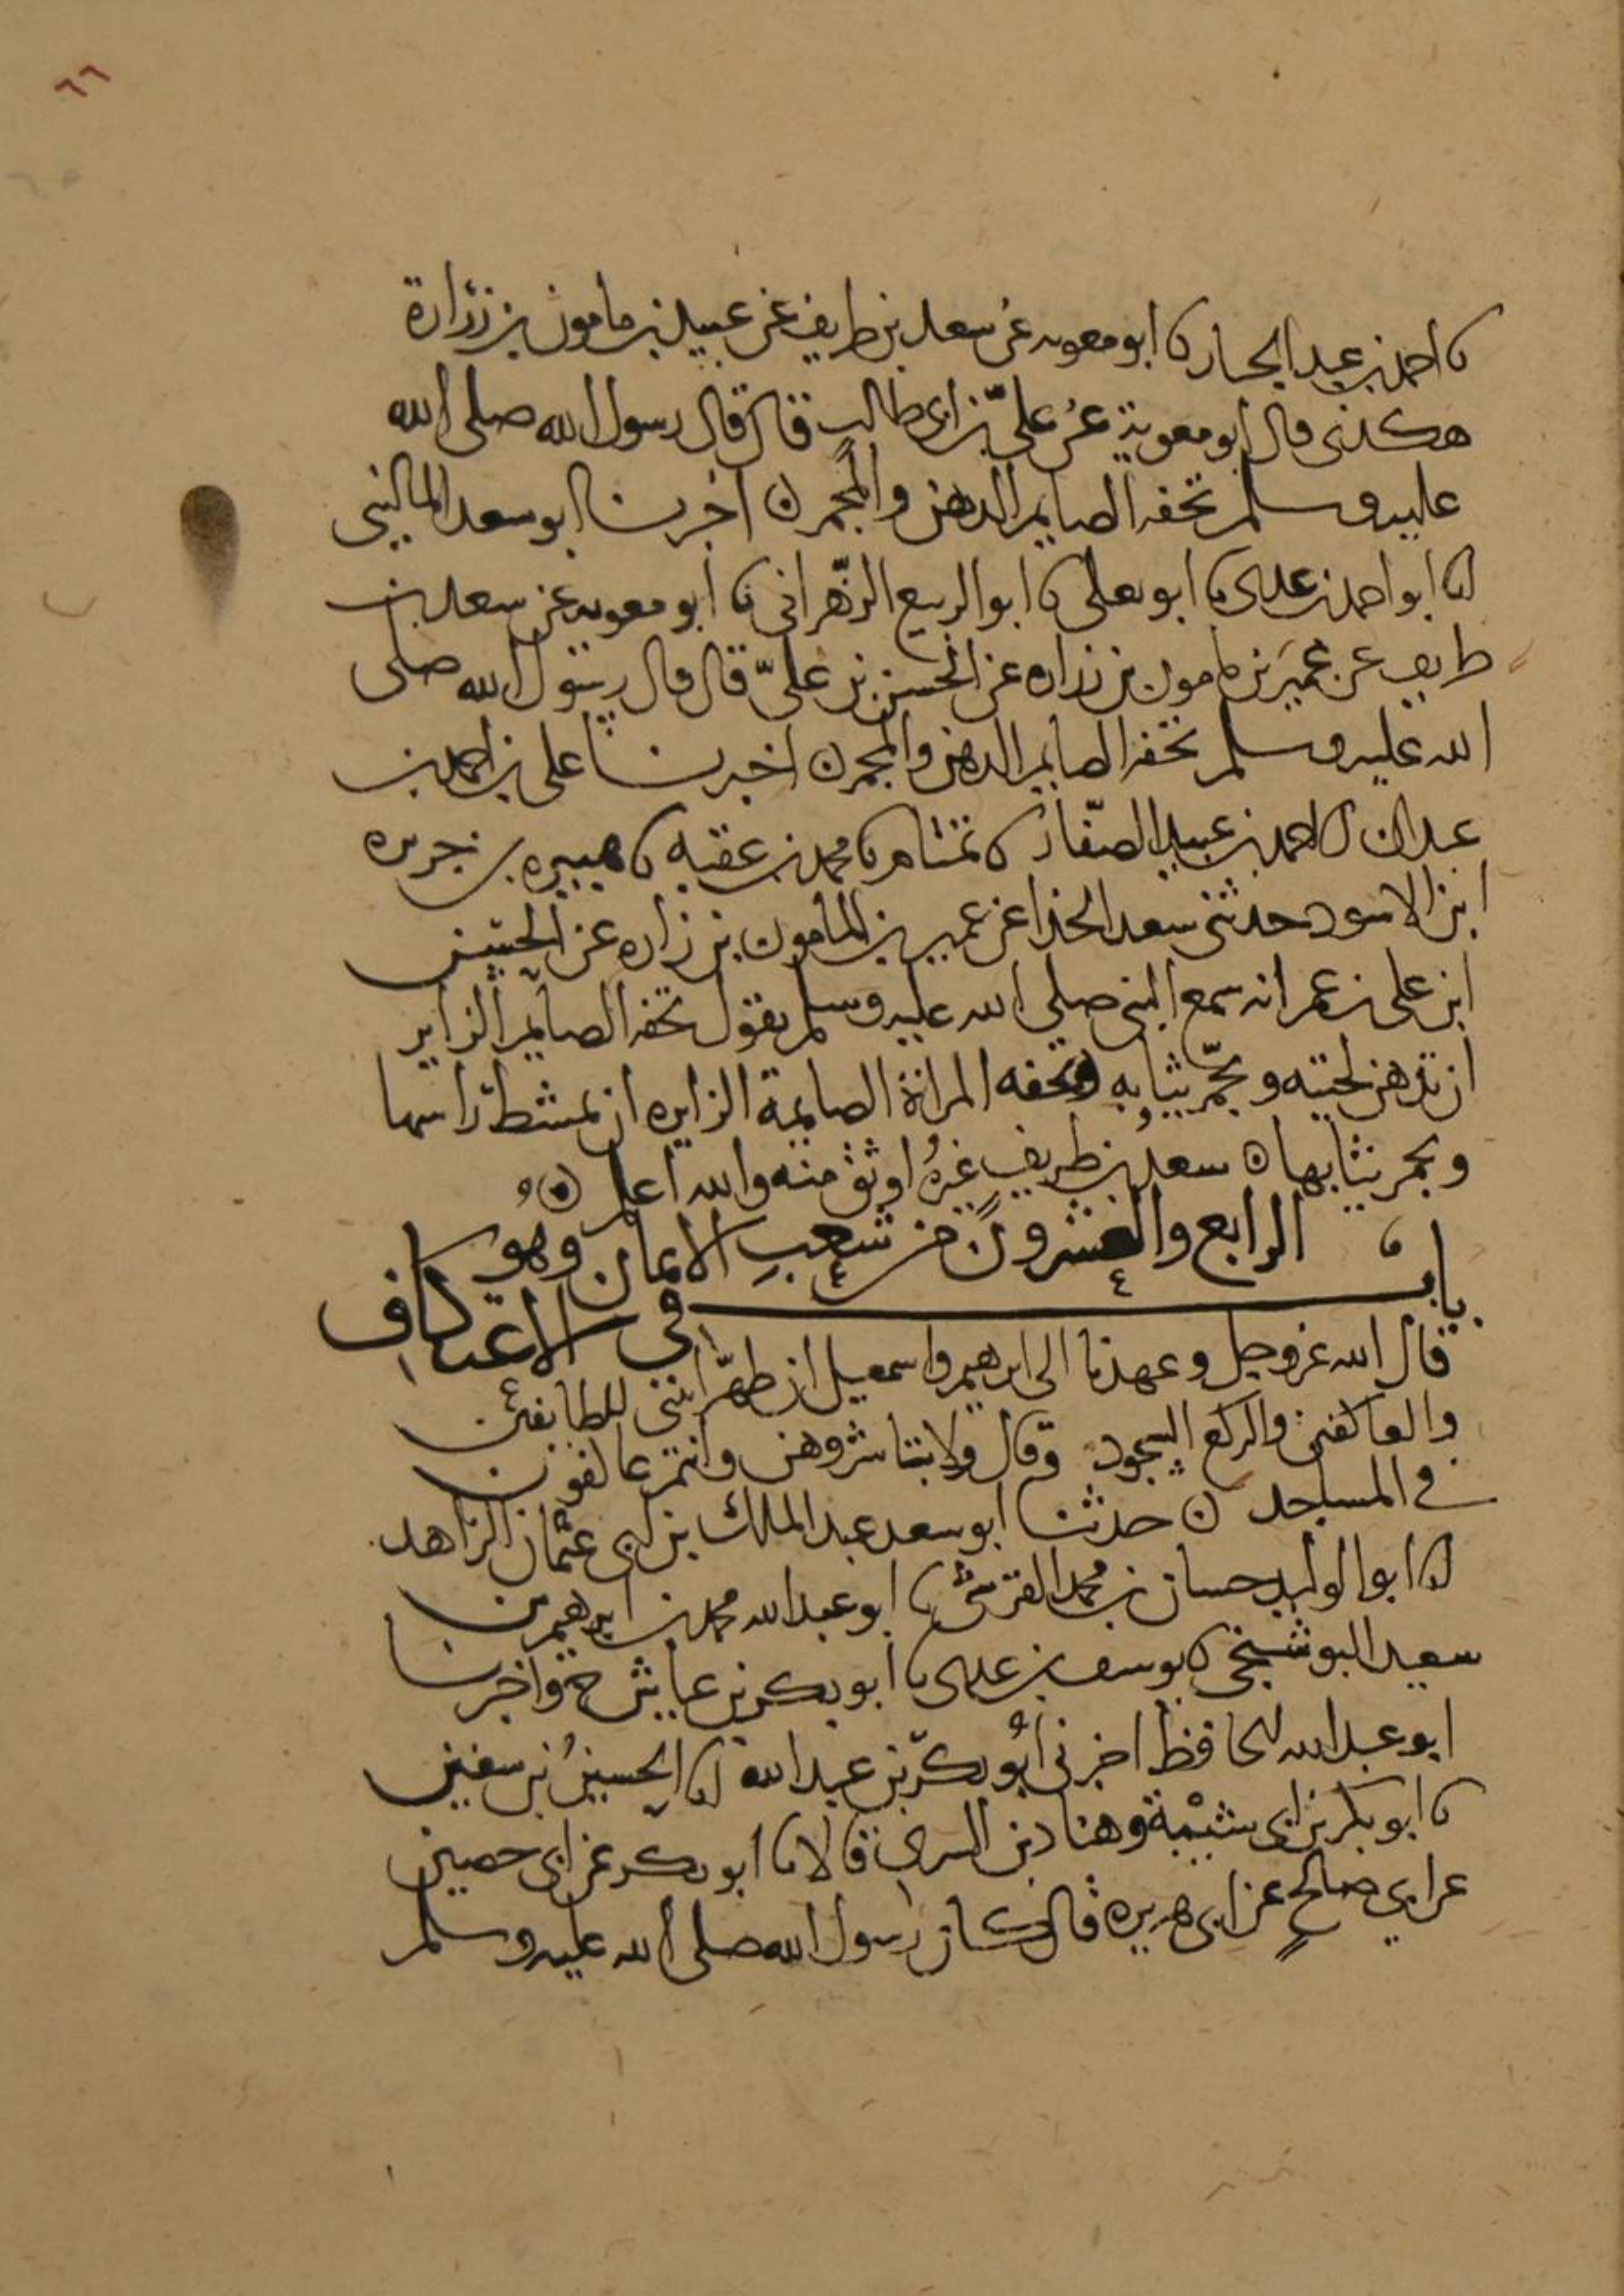 ٦٦
نا احمد بن عبد الجبار نا ابو معويه عن سعد بن طريف عن عبيد بن مامون بن زرارة
هكذى قال ابو معوية عن علي بن ابي طالب قال قال رسول الله صلى الله
عليه وسلم تحفه الصايم الدهن والمجمر ن اخبرنا ابو سعد الماليني
انا ابو احمد بن عدى نا ابو يعلى نا ابو الربيع الزهراني نا ابو معويه عن سعد بن
طريف عن عمير بن مامون بن زراره عن الحسن بن علي قال قال رسول الله صلى
الله عليه وسلم تحفه الصايم الدهن والمجمر ن اخبرنا علي بن احمد بن
عبدان انا احمد بن عبيد الصفار نا تمتام نا محمد بن عقبه نا هبيره بن جريره
ابن الاسود حدثني سعد الحذا عن عمير بن المامون بن زراره عن الحسين
ابن علي بن عمر انه سمع النبي صلى الله عليه وسلم يقول تحفه الصايم الزاير
ان تدهن لحيته وتجمر ثيابه وتحفه المراة الصايمة الزايره ان تمشط راسها
وتجمر ثيابها ن سعد بن طريف غيره اوثق منه والله اعلم
الرابع والعشرون من شعب الايمان وهو
باب في الاعتكاف
قال الله عز وجل وعهدنا الى ابرهيم واسمعيل ان طهرا بيتي للطايفين
والعاكفين والركع السجود وقال ولا تباشروهن وانتم عاكفون
في المساجد ن حدثنا ابو سعد عبد الملك بن ابي عثمان الزاهد
انا ابو الوليد حسان بن محمد القرشي نا ابو عبد الله محمد بن ابرهيم بن
سعيد البوشنجي نا يوسف بن عدى نا ابو بكر بن عياش ح واخبرنا
ابو عبد الله الحافظ اخبرني ابو بكر بن عبد الله انا الحسين بن سفين
نا ابو بكر بن ابي شيبة وهناد بن السري قالا نا ابو بكر عن ابي حصين
عن ابي صالح عن ابي هريره قال كان رسول الله صلى الله عليه وسلم